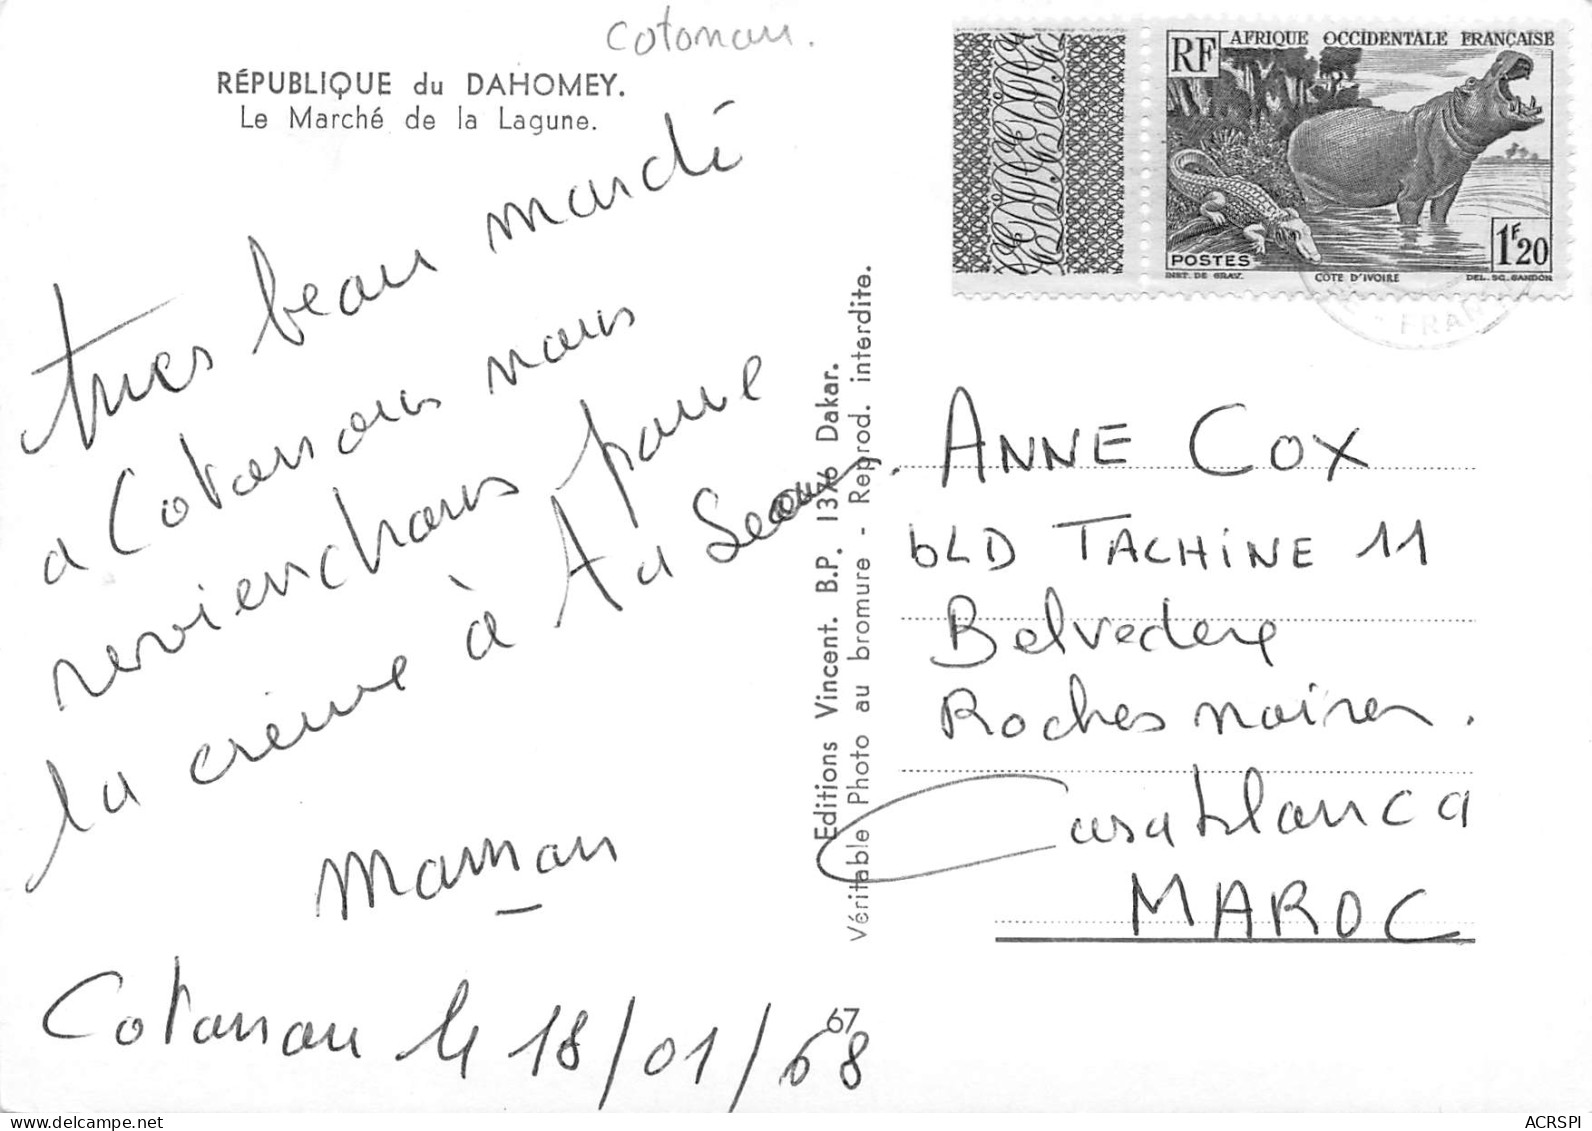 cotonou.
RÉPUBLIQUE du DAHOMEY.
Le Marché de la Lagune.
tres beau marché
a Cotonou nous
reviendrons pour
la crème à
Maman
Cotonou le 18/01/68
Editions Vincent. B.P. 1376 Dakar.
Véritable Photo au bromure - Reprod. interdite.
67
RF AFRIQUE OCCIDENTALE FRANÇAISE
POSTES
1F20
INST. DE GRAV. CÔTE D'IVOIRE DEL. SC. GANDON
ANNE COX
bLD TACHINE 11
Belvedere
Roches noires.
Casablanca
MAROC
ACRSPI